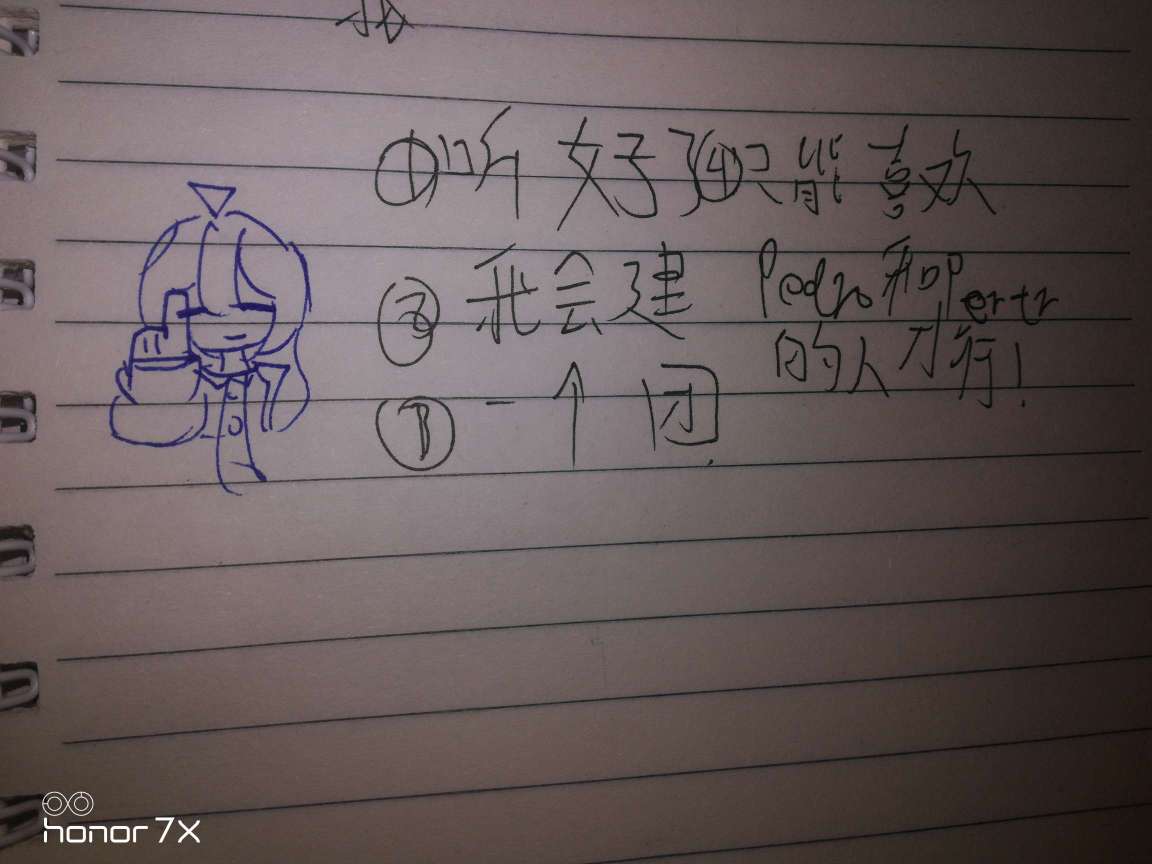 ①听好了
②我会建
③一个团
④只能喜欢
Pedro和Pertr
的人才行!
honor 7X